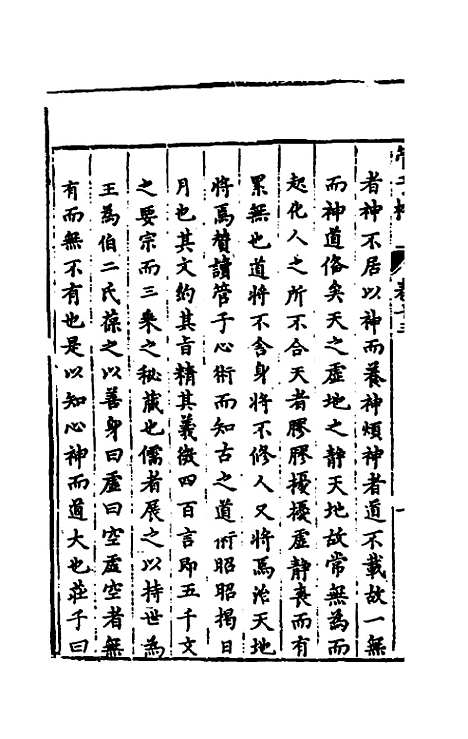 者神不居以神而養神煩神者道不載故一無
而神道俻矣天之虛地之靜天地故常無為而
起化人之所不合天者膠膠擾擾虛靜喪而有
累無也道將不舍身將不修人又將焉治天地
將焉贊讀管子心術而知古之道術昭昭揭日
月也其文約其旨精其義微四百言即五千文
之要宗而三乘之秘藏也儒者展之以持世為
王為伯二氏葆之以善身曰虛曰空虛空者無
有而無不有也是以知心神而道大也莊子曰